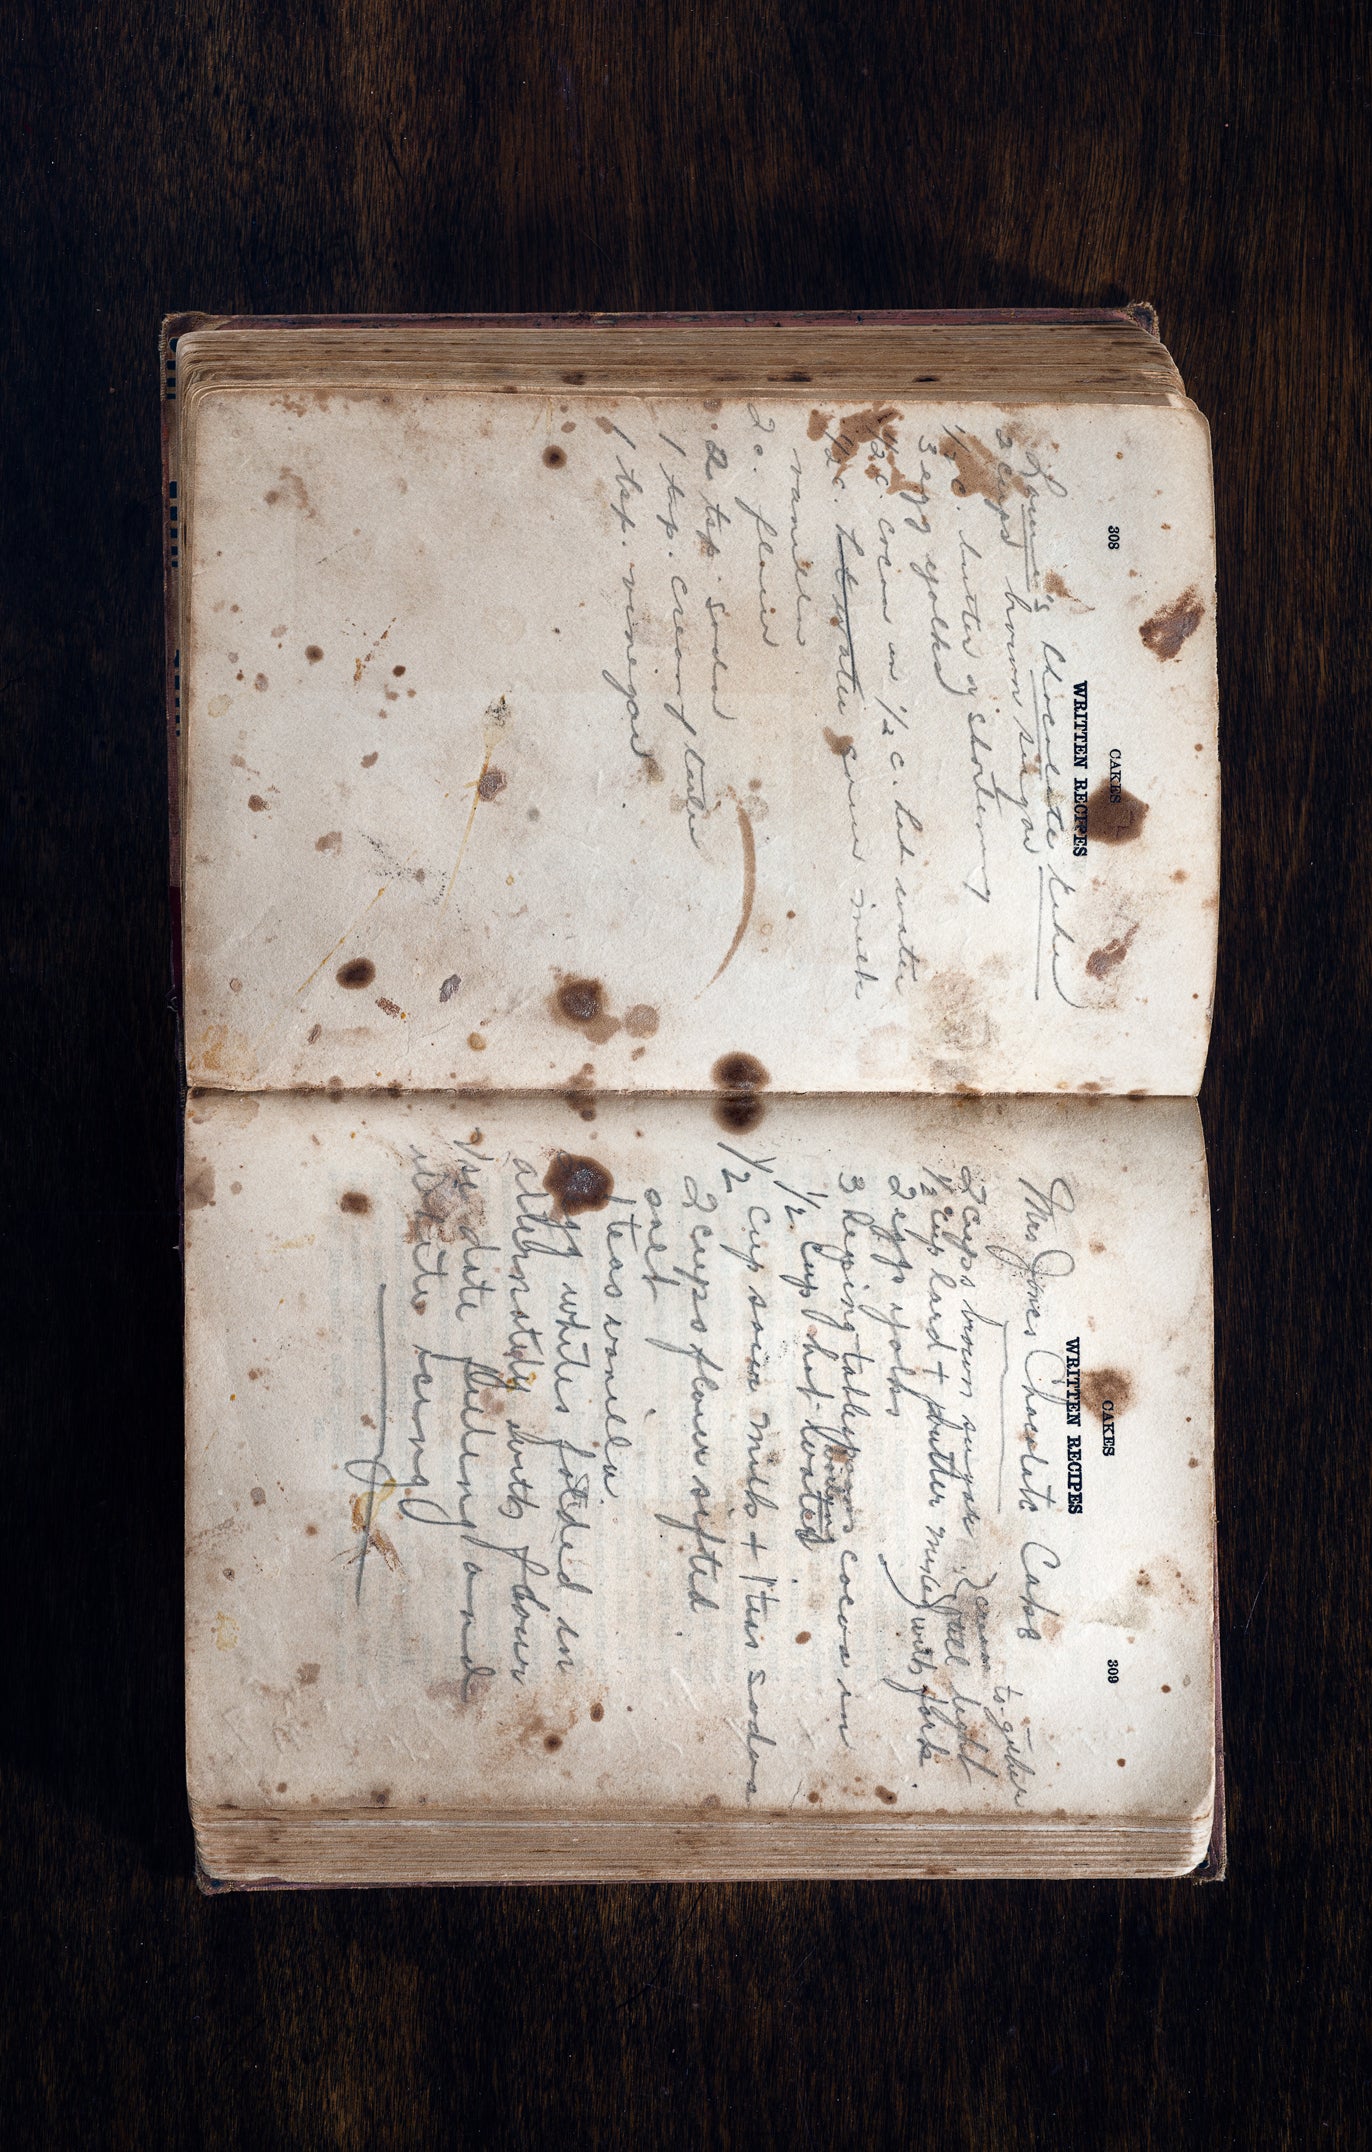 308
CAKES
WRITTEN RECIPES
Chocolate Cake
2 cups brown sugar
1/2 c. butter or shortening
3 egg yolks
1/2 c. cocoa in 1/2 c. hot water
1/2 c. hot water sour milk
vanilla
2 c. flour
2 tsp. soda
1 tsp. cream tarter
1 tsp. vinegar
CAKES
309
WRITTEN RECIPES
Mrs Jones Chocolate Cake
2 cups brown sugar } cream to gether
until light
1/2 cup lard + butter mixed with fork.
2 egg yolks
3 heping tablespoons cocoa in
1/2 cup hot water
1/2 cup sour milk + 1 teas soda
2 cups flour sifted.
once
1 teas vanella.
egg whites folded in
alternately with flour
Use date filling and
white icing